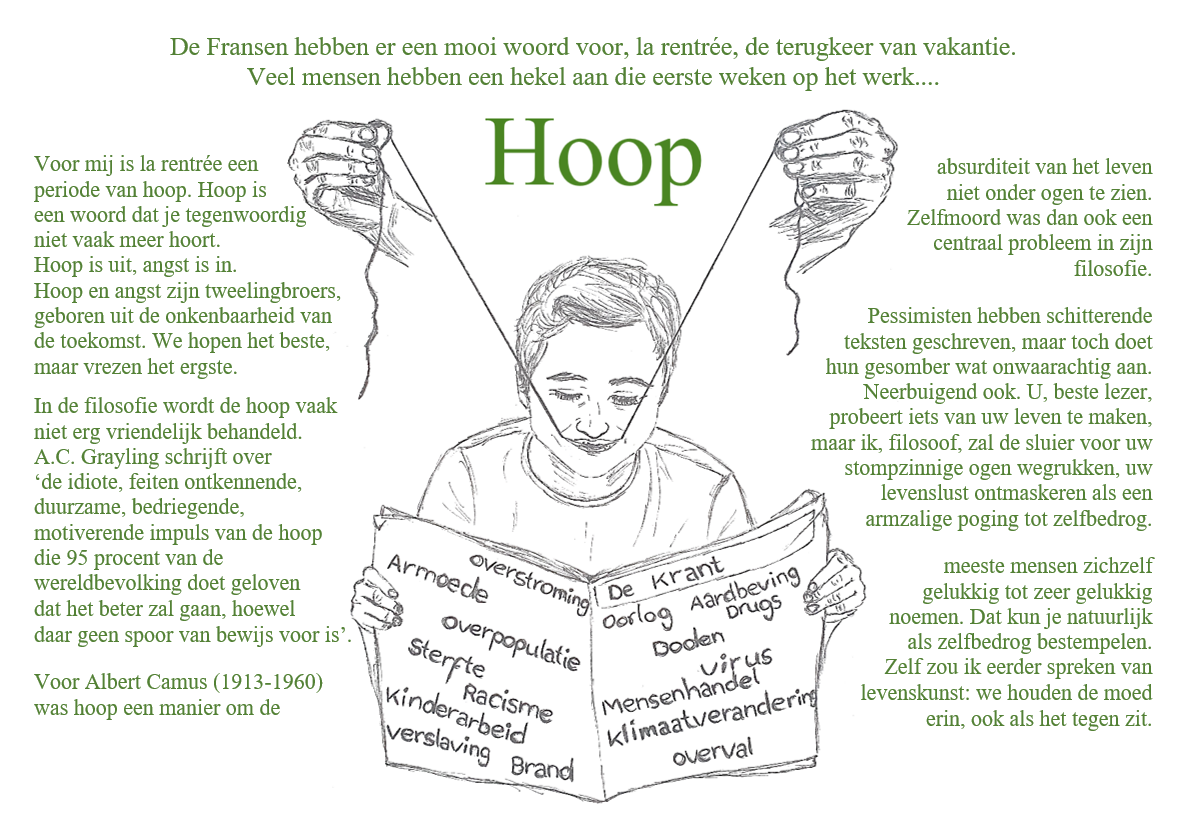 De Fransen hebben er een mooi woord voor, la rentrée, de terugkeer van vakantie.
Veel mensen hebben een hekel aan die eerste weken op het werk....
Hoop
Voor mij is la rentrée een
periode van hoop. Hoop is
een woord dat je tegenwoordig
niet vaak meer hoort.
Hoop is uit, angst is in.
Hoop en angst zijn tweelingbroers,
geboren uit de onkenbaarheid van
de toekomst. We hopen het beste,
maar vrezen het ergste.
In de filosofie wordt de hoop vaak
niet erg vriendelijk behandeld.
A.C. Grayling schrijft over
‘de idiote, feiten ontkennende,
duurzame, bedriegende,
motiverende impuls van de hoop
die 95 procent van de
wereldbevolking doet geloven
dat het beter zal gaan, hoewel
daar geen spoor van bewijs voor is’.
Voor Albert Camus (1913-1960)
was hoop een manier om de
absurditeit van het leven
niet onder ogen te zien.
Zelfmoord was dan ook een
centraal probleem in zijn
filosofie.
Pessimisten hebben schitterende
teksten geschreven, maar toch doet
hun gesomber wat onwaarachtig aan.
Neerbuigend ook. U, beste lezer,
probeert iets van uw leven te maken,
maar ik, filosoof, zal de sluier voor uw
stompzinnige ogen wegrukken, uw
levenslust ontmaskeren als een
armzalige poging tot zelfbedrog.
meeste mensen zichzelf
gelukkig tot zeer gelukkig
noemen. Dat kun je natuurlijk
als zelfbedrog bestempelen.
Zelf zou ik eerder spreken van
levenskunst: we houden de moed
erin, ook als het tegen zit.
overstroming
Armoede
overpopulatie
Sterfte
Racisme
Kinderarbeid
verslaving
Brand
De Krant
Oorlog
Aardbeving
Drugs
Doden
virus
Mensenhandel
klimaatverandering
overval